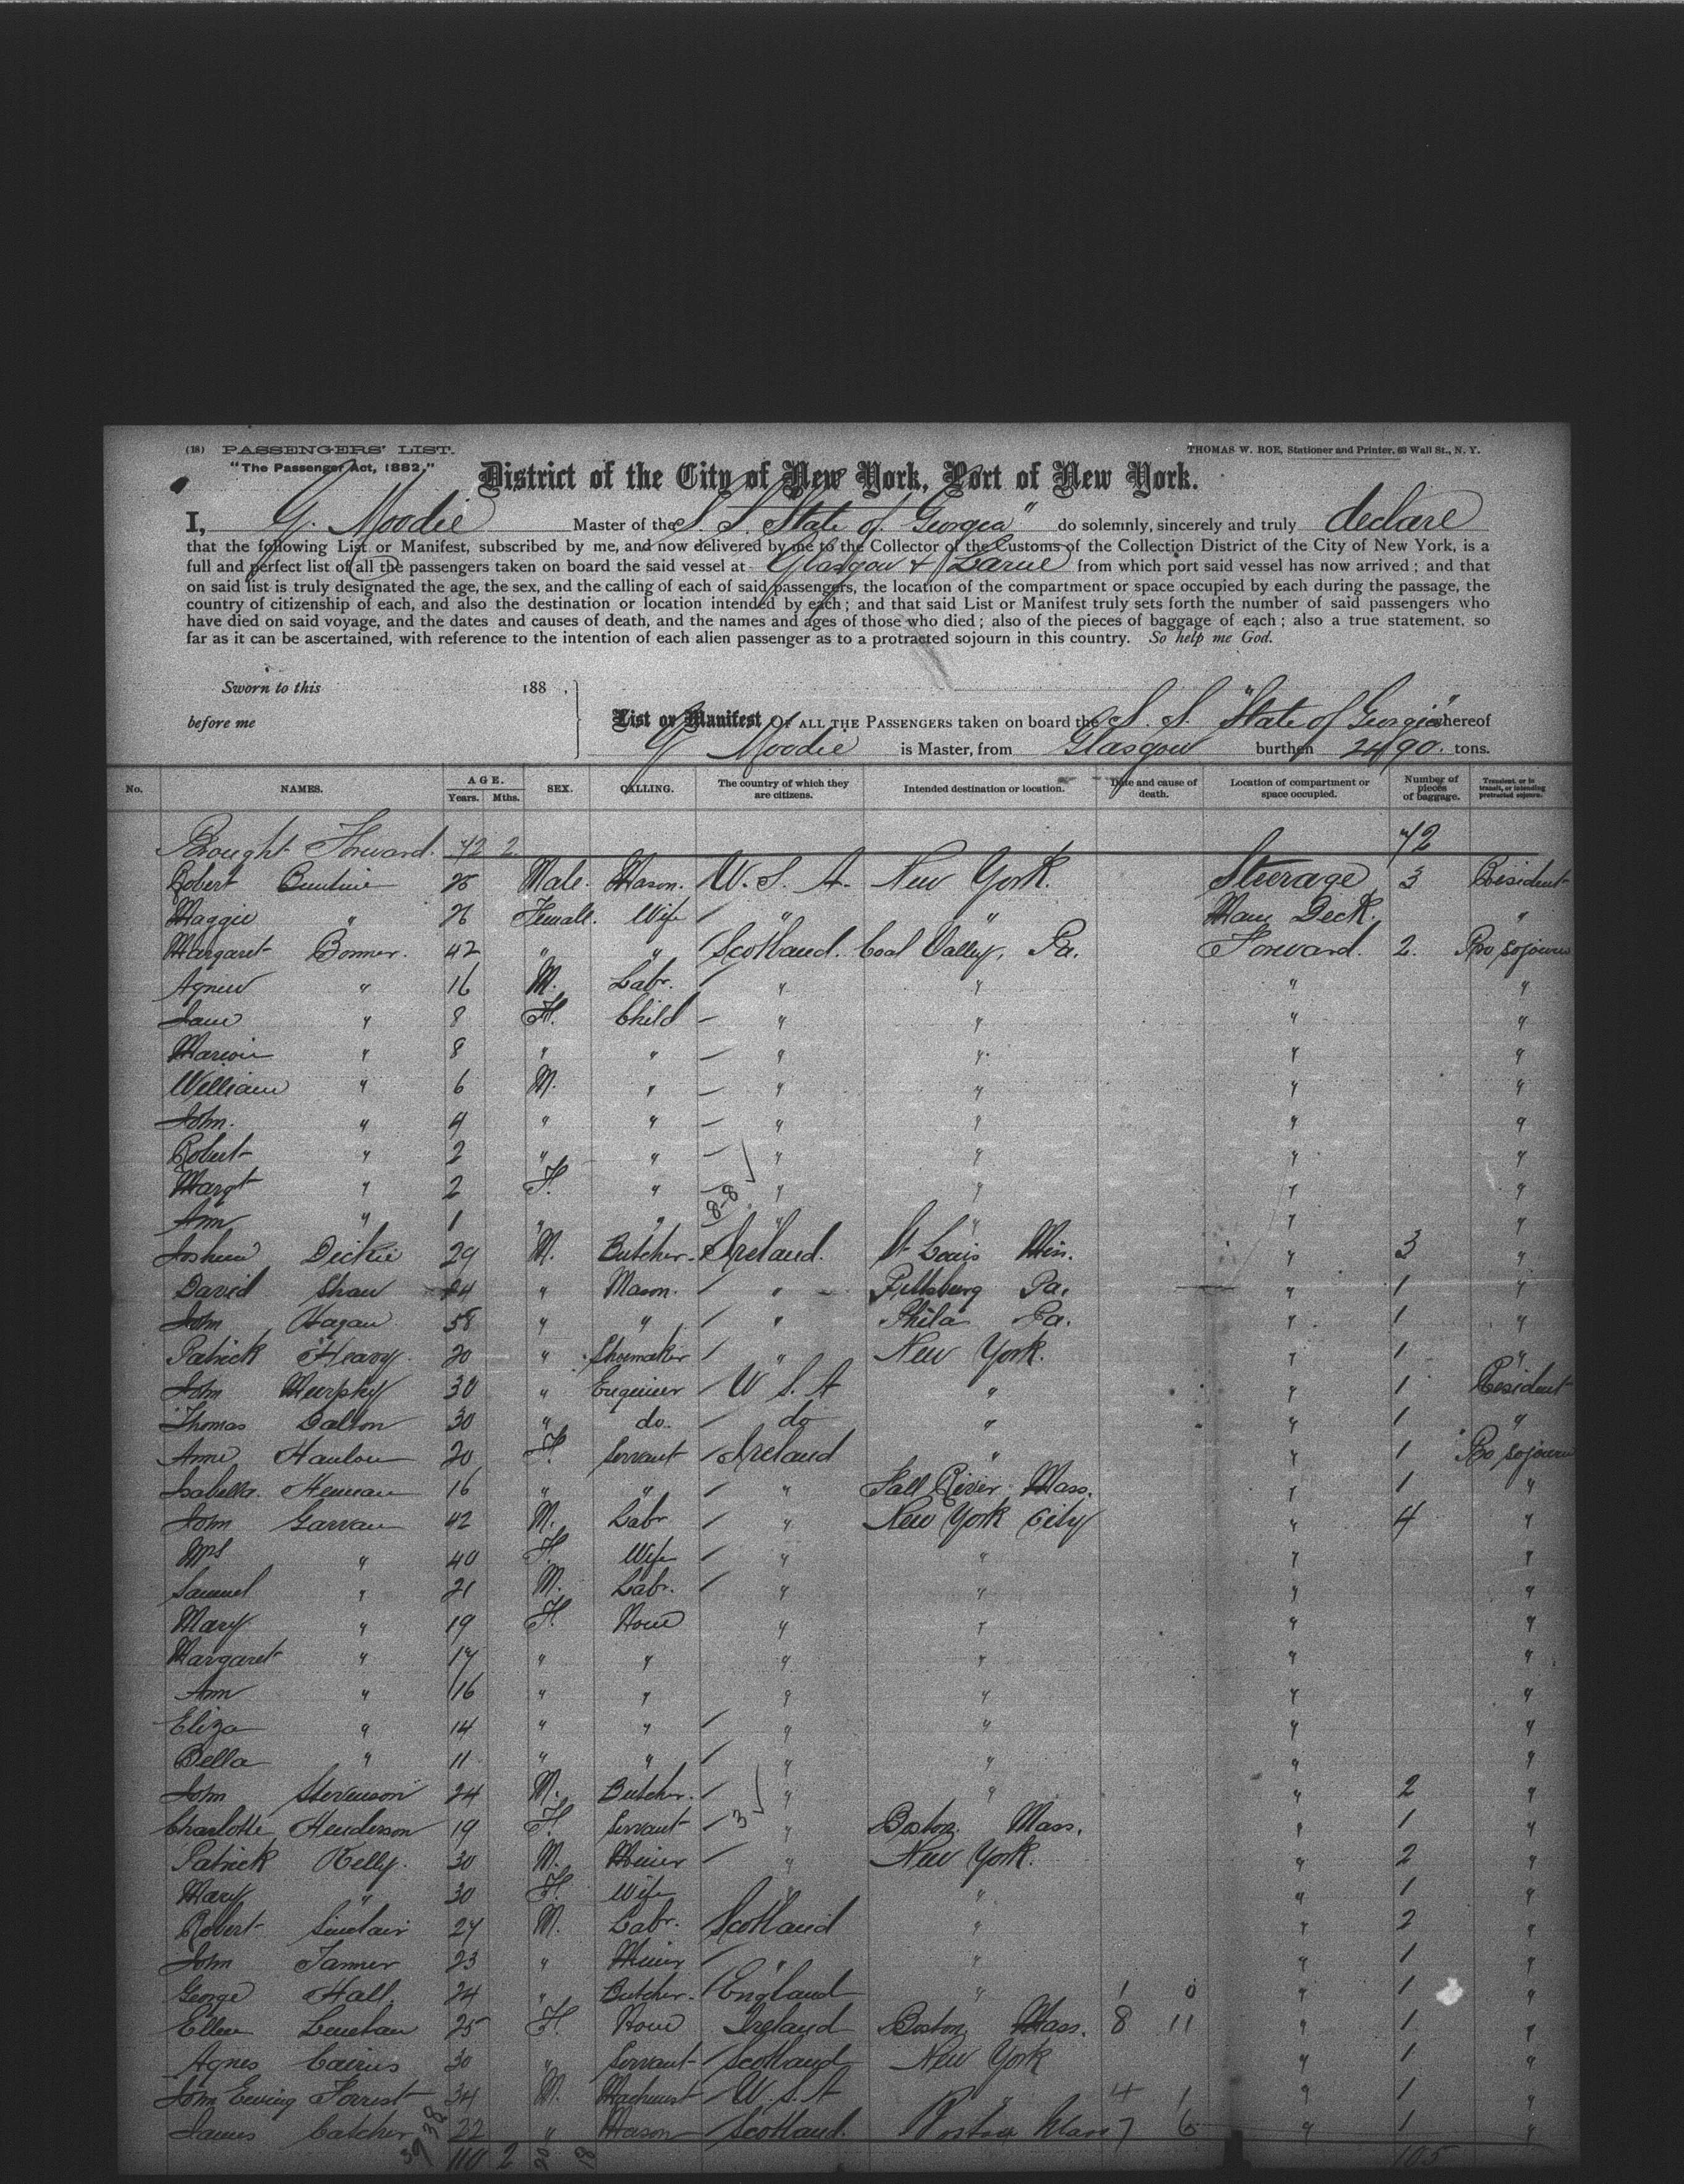 (18) PASSENGERS' LIST. THOMAS W. ROE, Stationer and Printer, 69 Wall St., N. Y.
"The Passenger Act, 1882."
District of the City of New York, Port of New York.
I, G. Moodie Master of the S. S. State of Georgia" do solemnly, sincerely and truly declare
that the following List or Manifest, subscribed by me, and now delivered by me to the Collector of the Customs of the Collection District of the City of New York, is a
full and perfect list of all the passengers taken on board the said vessel at Glasgow & Larne from which port said vessel has now arrived; and that
on said list is truly designated the age, the sex, and the calling of each of said passengers, the location of the compartment or space occupied by each during the passage, the
country of citizenship of each, and also the destination or location intended by each; and that said List or Manifest truly sets forth the number of said passengers who
have died on said voyage, and the dates and causes of death, and the names and ages of those who died; also of the pieces of baggage of each; also a true statement, so
far as it can be ascertained, with reference to the intention of each alien passenger as to a protracted sojourn in this country. So help me God.
Sworn to this 188 ,
before me List or Manifest OF ALL THE PASSENGERS taken on board the S. S. "State of Georgia" whereof
G Moodie is Master, from Glasgow burthen 2490 tons.
No. NAMES. AGE. Years. Mths. SEX. CALLING. The country of which they are citizens. Intended destination or location. Date and cause of death. Location of compartment or space occupied. Number of pieces of baggage. Transient, or in transit, or intending protracted sojourn.
Brought Forward. 72 2 72
Robert 26 Male. Mason. U. S. A. New York. Steerage 3 Resident
Maggie " 26 Female. Wife " " Main Deck. "
Margaret Bonner. 42 " " Scotland. Coal Valley, Pa. Forward. 2. Pro sojourn
Agnew " 16 M. Labr. " " " "
Jane " 8 F. Child " " " "
Marion " 8 " " " " " "
William " 6 M. " " " " "
John. " 4 " " " " " "
Robert " 2 " " " " " "
Margt " 2 F. " " " " "
Ann " 1 " " " " " "
Joshua Dickie 29 M. Butcher Ireland. St Louis Min. " 3 "
David Shaw 24 " Mason. " Pittsburg Pa. " 1 "
John Hagan 58 " " " Phila Pa. " 1 "
Patrick Heavy. 20 " Shoemaker " New York. " 1 "
John Murphy 30 " Engineer U S. A " " 1 Resident
Thomas Dalton 30 " do. do " " 1 "
Anne Hanlon 20 F. Servant Ireland " " 1 Pro sojourn
Isabella. Heenan 16 " " " Fall River Mass. " 1 "
John Garvan 42 M. Labr " New York City " 4 "
Mrs " 40 F. Wife " " " "
Samuel " 21 M. Labr. " " " "
Mary " 19 F. None " " " "
Margaret " 17 " " " " " "
Ann " 16 " " " " " "
Eliza " 14 " " " " " "
Bella " 11 " " " " " "
John Stevenson 24 M. Butcher. " " " 2 "
Charlotte Henderson 19 F. Servant 3 " Boston Mass. " 1 "
Patrick Kelly. 30 M. Miner " New York. " 2 "
Mary " 30 F. Wife " " " 1 "
Robert Sinclair 27 M. Labr. Scotland " " 2 "
John Tanner 23 " Miner " " " 1 "
George Hall. 24 " Butcher. England " 1 0 " 1 "
Ellen Lenehan 25 F. None Ireland Boston Mass. 8 11 " 1 "
Agnes Cairns 30 " Servant Scotland New York " 1 "
John Ewing Forrest 34 M. Machinist U. S. A " 4 1 " 1 "
James Catcher 22 " Mason Scotland. Boston Mass 7 6 " 1 "
39 38 110 2 20 18 105